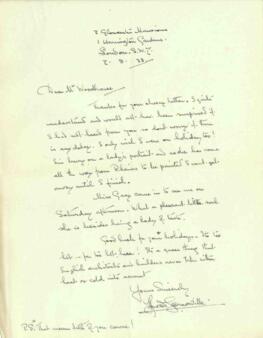 2 Gloucester Mansions
1 Harrington Gardens
London. S.W.7.
2. 8. 33
Dear Mr Woodhouse
Thanks for your cheery letter. I quite
understand and would not have been surprised if
I had not heard from you so don't worry if there
is any delay. I only wish I were on holiday too! I
am busy on a lady's portrait and as she has come
all the way from to be painted I can't get
away until I finish.
Miss Gray came in to see me on
Saturday afternoon. What a pleasant soul
she is besides being a lady of taste.
Good luck for your holidays. It's too
hot - for too hot here! It's a queer thing that
English architects and builders never take either
heat or cold into account
Yours Sincerely
P.S. That means hell if you come!